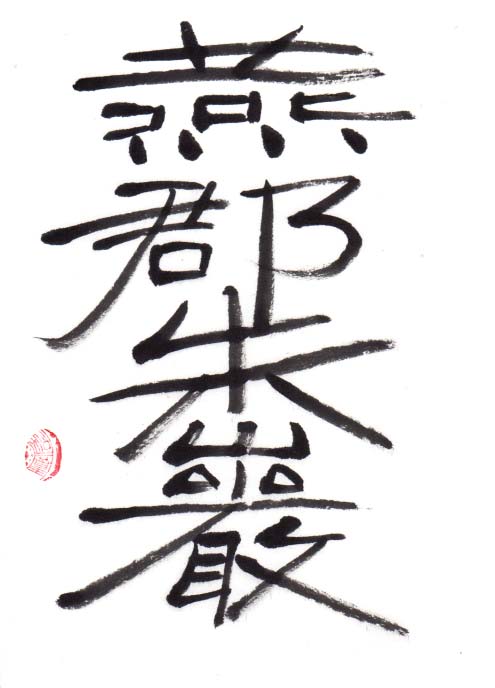 燕郡朱巖